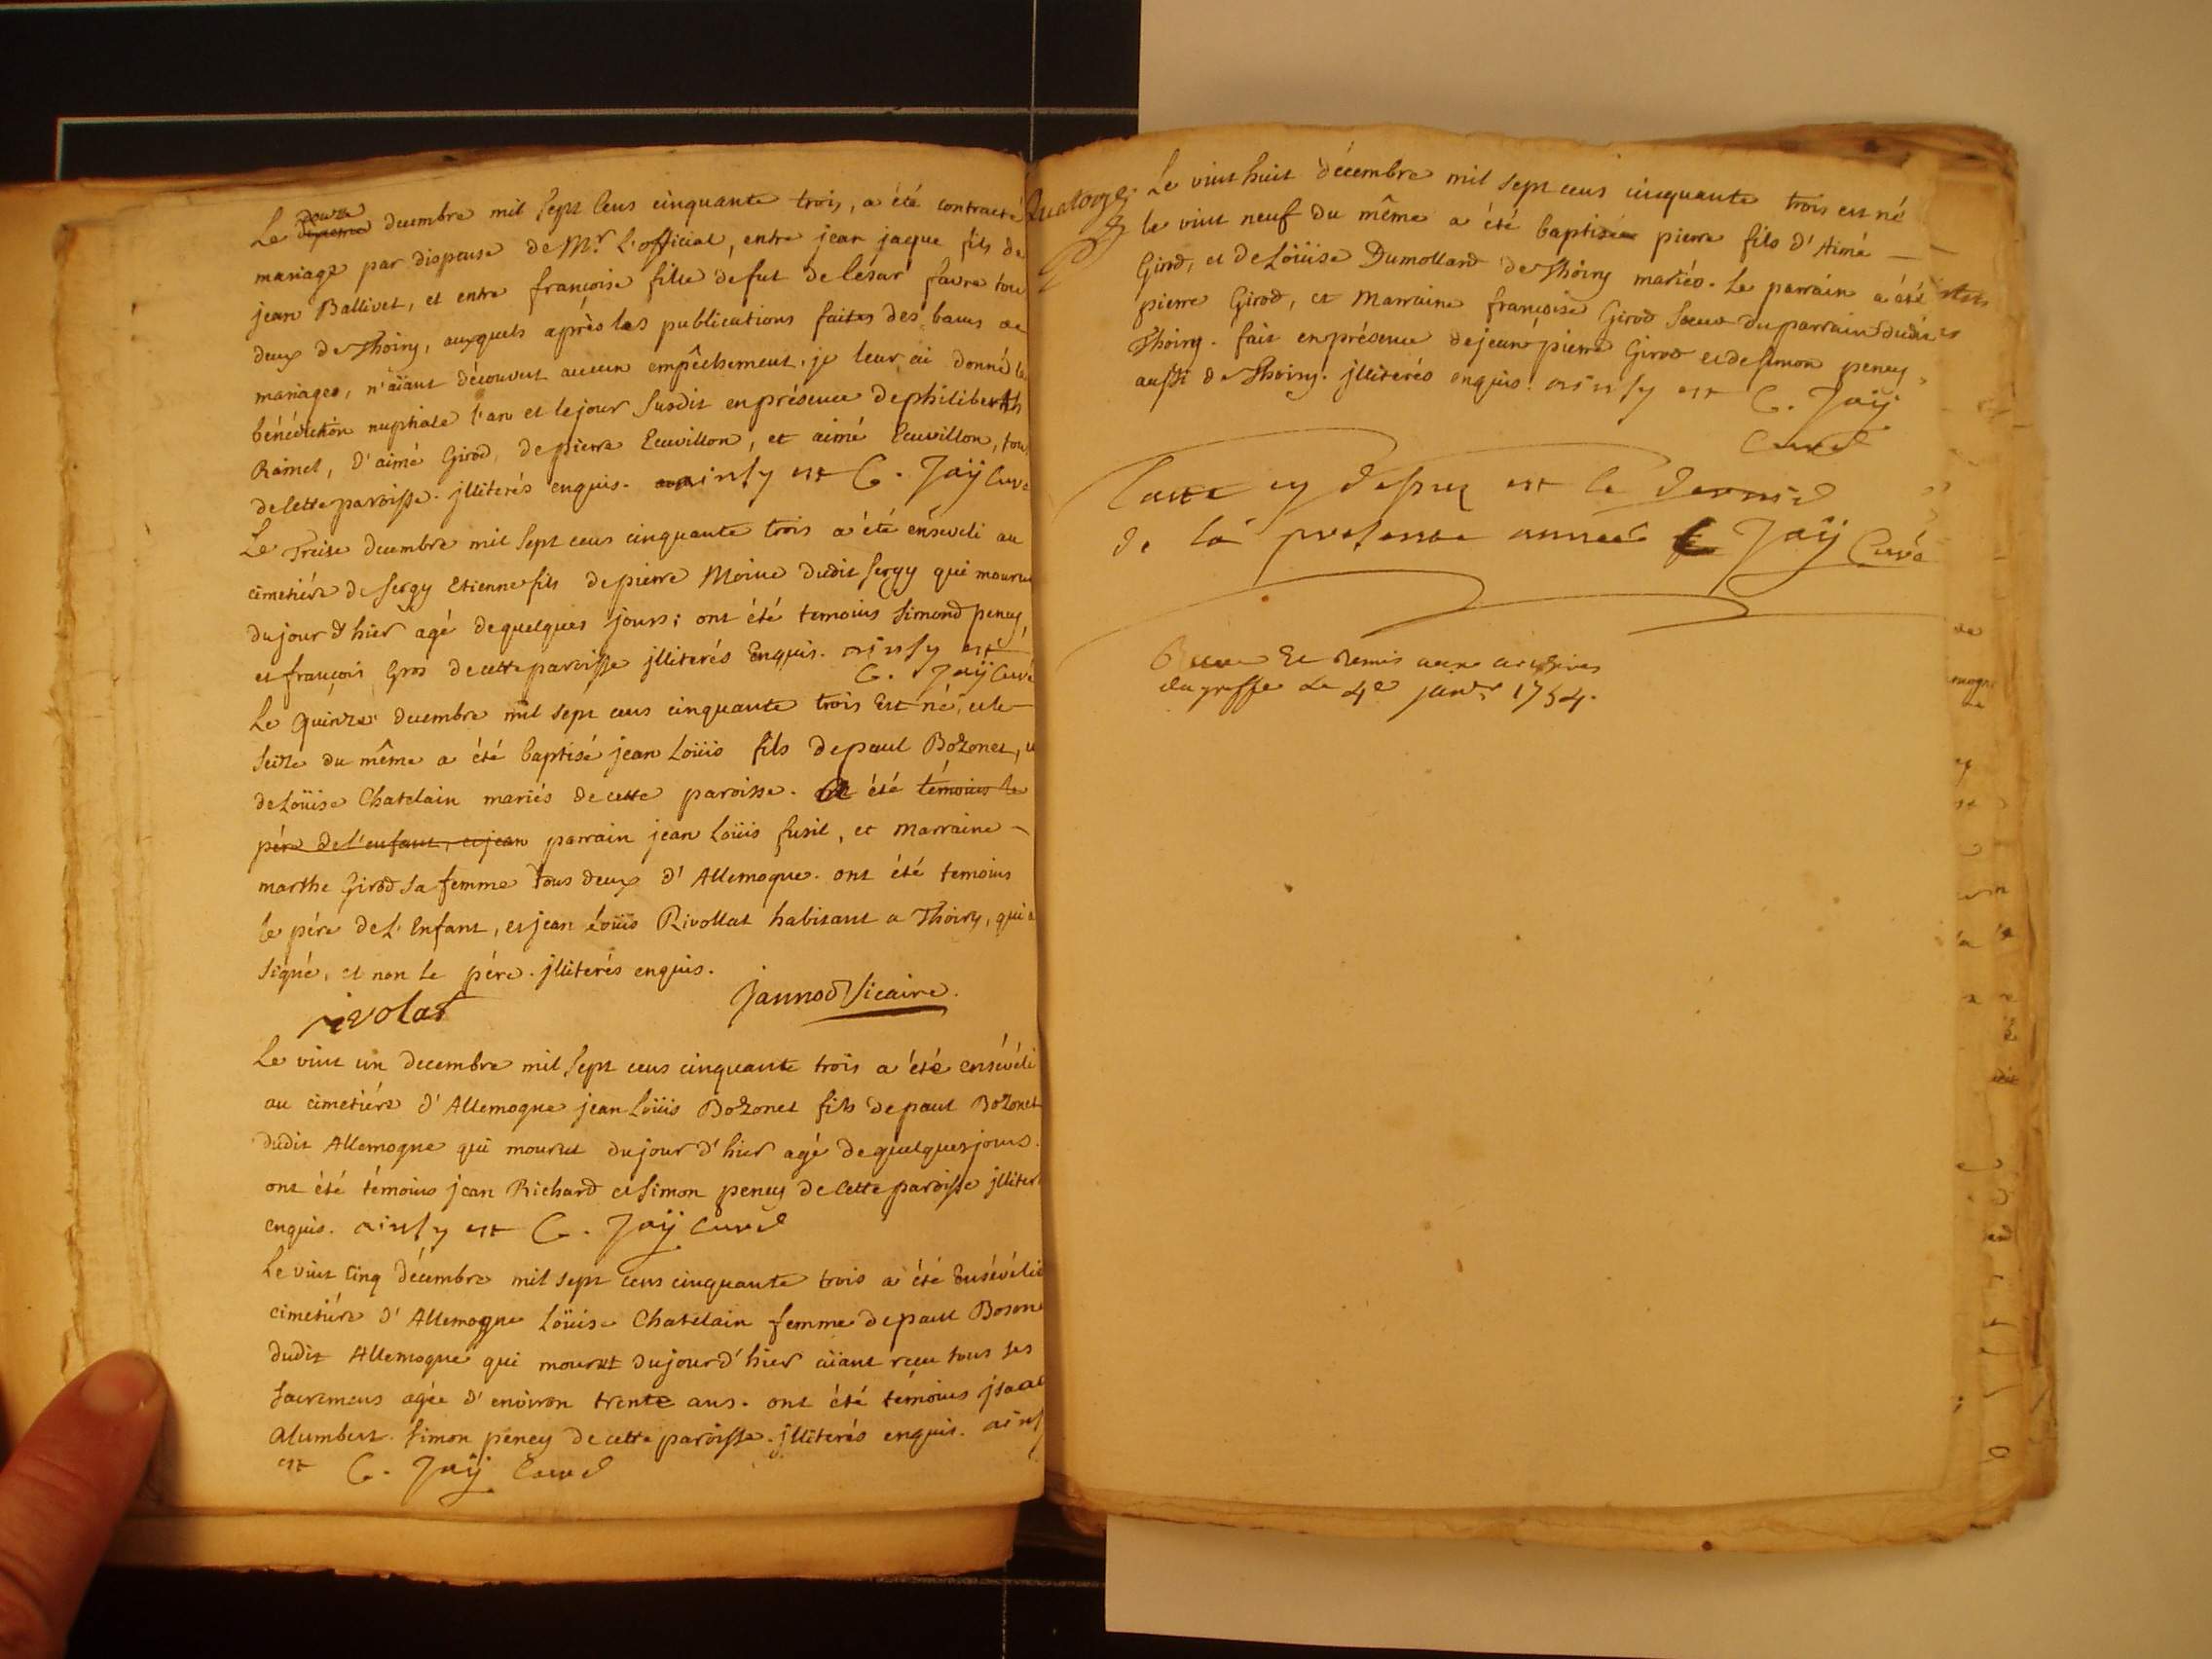 Le douze decembre mil sept cens cinquante trois, a été contracté
mariage par dispense de Mr. L'official, entre jean jaque fils de
jean Ballivet, et entre françoise fille defut de Césár favre tou
deux de Thoiry, auxquels après les publications faites des bans de
mariages, n'aïant découvert aucun empêchement. je leur ai donné la
bénédiction nuptiale l'an et le jour susdit en présence de philiberth
Ramel, d'aimé Girod, de pierre Ecuvillon, et aimé Ecuvillon, tou
de cette paroisse. jlliterés enquis. ainsy est C. Jaÿ Curé
Le Treise decembre mil sept cens cinquante trois a été enseveli au
cimetiére de sergy Etienne fils de pierre Moine dudit sergy qui mouru
du jour d'hier agé de quelques jours; ont été temoins simond peney,
et françois Gros de cette paroisse jlliterés Enquis. ainsy est
C. Jaÿ Curé
Le Quinze decembre mil sept cens cinquante trois Est né, et le
seize du même a été baptisé jean Loüis fils de paul Bozonet, e
de Loüise Chatelain mariés de cette paroisse. été témoins le
pére de l'enfant, et jean parrain jean Loüis fusil, et Marraine
marthe Girod sa femme tous deux d'Allemogne. ont été temoins
le pére de L'Enfant, et jean Loüis Rivollat habitant a Thoiry, qui a
signé, et non le pére. jlliterés enquis.
rivolat Jannod Vicaire.
Le vint un decembre mil sept cens cinquante trois a été ensévéli
au cimetiére d'Allemogne jean Loüis Bozonet fils de paul Bozonet
dudit Allemogne qui mourut du jour d'hier agé de quelques jours.
ont été témoins jean Richard et simon peney de cette paroisse jlliter
enquis. ainsy est C. Jaÿ Curé
Le vint Cinq décembre mil sept cens cinquante trois a été Ensévélie
cimetiére d'Allemogne Loüise Chatelain femme de paul Boson
dudit Allemogne qui mourut du jour d'hier aïant recu tous ses
sacremens agée d'environ trente ans. ont été témoins jsaac
alumbert. simon peney de cette paroisse. jlliterés enquis. ainsy
est C. Jaÿ Curé
Quatorze
Le vint huit décembre mil sept cens cinquante trois est né
le vint neuf du même a été baptisé pierre fils d'Aimé
Girod, et de Loüise Dumollard de Thoiry mariés. Le parrain a été
pierre Girod, et Marraine françoise Girod soeur du parrain dudit
Thoiry. fait en présence de jean pierre Girod et de simon peney
aussi de Thoiry. jlliterés enquis. ainsy est C. Jaÿ
Curé
est le dernié
de la presente année C Jaÿ Curé
Et Remis aux archives
du greffe Le 4e janvr 1754.